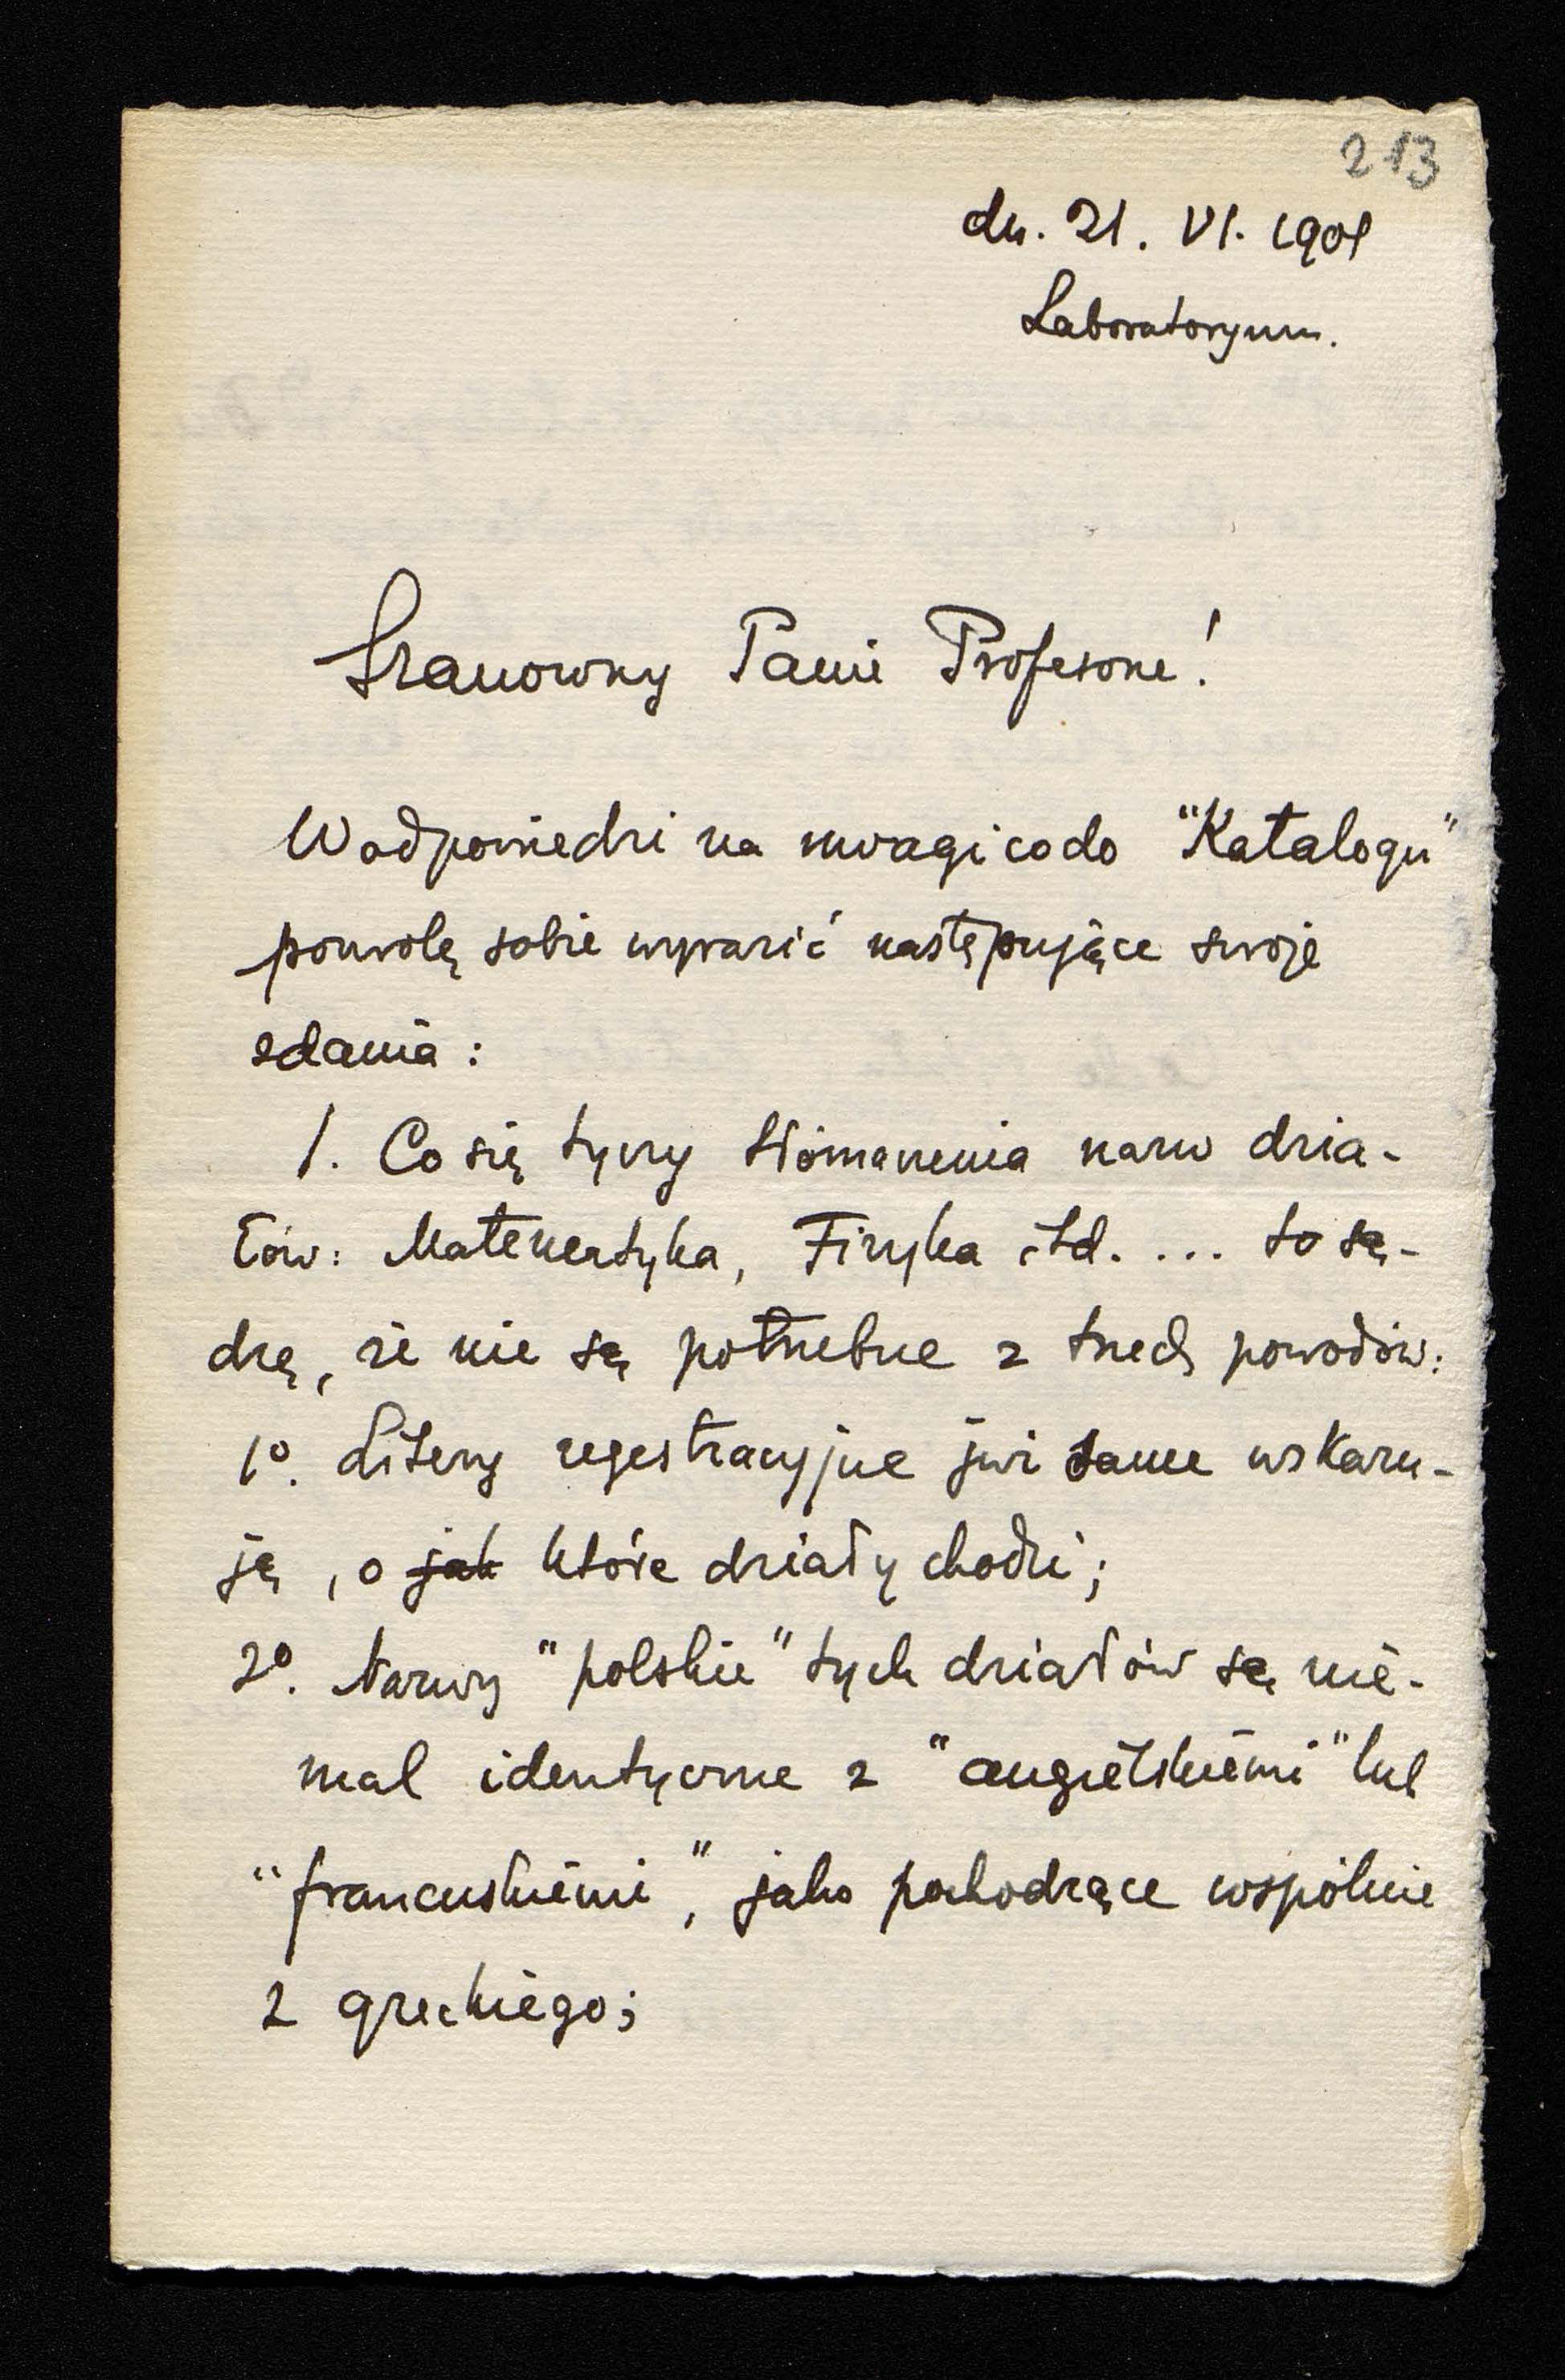 213
dn. 21. VI. 1901
Laboratoryum.
Szanowny Panie Profesorze!
W odpowiedzi na uwagi co do "Katalogu"
pozwolę sobie wyrazić następujące swoje
zdania:
1. Co się tyczy tłómaczenia nazw dzia-
łów: Matematyka, Fizyka itd. ... to są-
dzę, że nie są potrzebne z trzech powodów:
1º. Litery regestracyjne już same wskazu-
ją, o jak które działy chodzi;
2º. Nazwy "polskie" tych działów są nie-
mal identyczne z "angielskiemi" lub
"francuskiemi", jako pochodzące wspólnie
z greckiego;